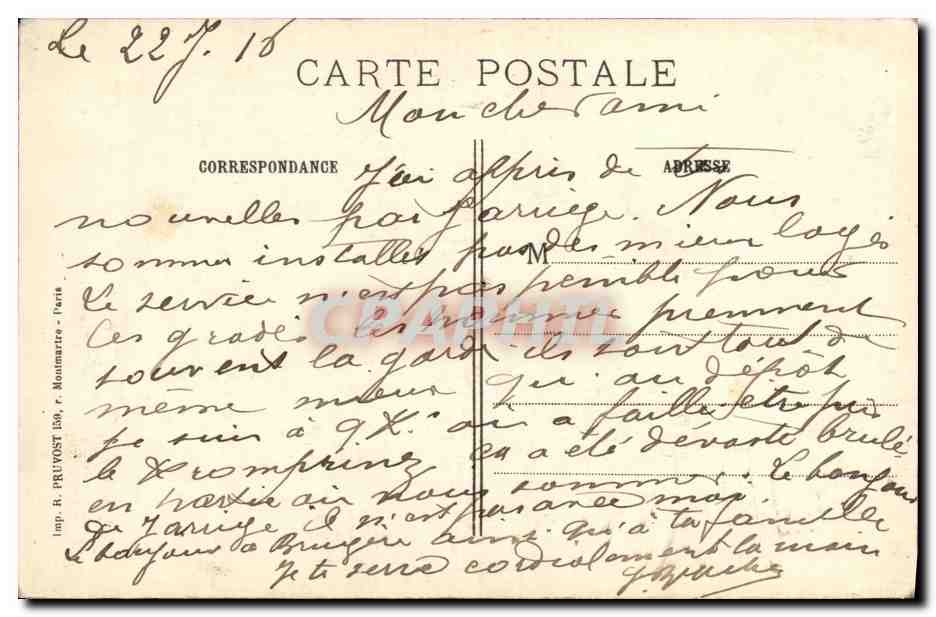 Le 22 J. 16
CARTE POSTALE
Mon cher ami
CORRESPONDANCE
ADRESSE
J'ai appris de tes
nouvelles par Jarriege. Nous
sommes installés pas des mieux logés
M
Le service n'est pas penible pour
les gradés les hommes prennent
souvent la garde ils sont tout de
même mieux qu'au dépôt
je suis à q.K. où a failli être pris
le Kromprinz ça a été dévasté brulé
en partie où nous sommes. Le bonjour
de Jarriege il n'est pas avec moi.
Le bonjour à Brugère ainsi qu'à ta famille
Je te serre cordialement la main
Imp. R. PRUVOST 159, r. Montmartre - Paris
CPAPHIL